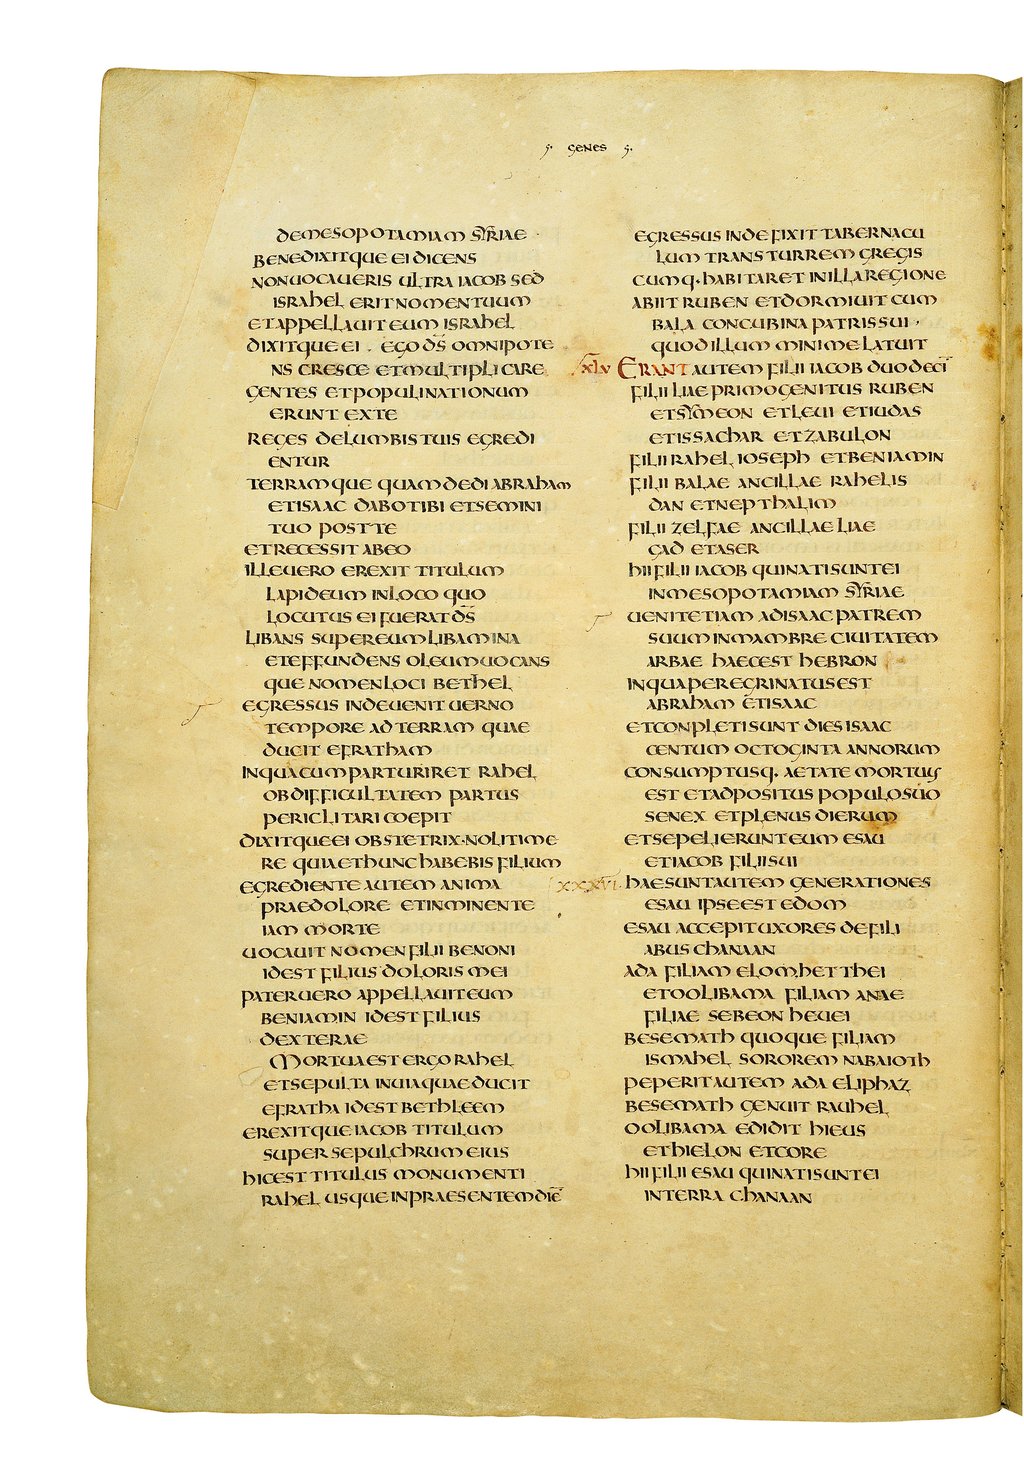 GENES
DEMESOPOTAMIAM SYRIAE
BENEDIXITQUE EI DICENS
NON UOCAUERIS ULTRA IACOB SED
ISRAHEL ERIT NOMEN TUUM
ET APPELLAUIT EUM ISRAHEL
DIXITQUE EI . EGO D̄S̄ OMNIPOTE
NS CRESCE ET MULTIPLICARE
GENTES ET POPULI NATIONUM
ERUNT EX TE
REGES DE LUMBIS TUIS EGREDI
ENTUR
TERRAMQUE QUAM DEDI ABRAHAM
ET ISAAC DABO TIBI ET SEMINI
TUO POST TE
ET RECESSIT AB EO
ILLE UERO EREXIT TITULUM
LAPIDEUM IN LOCO QUO
LOCUTUS EI FUERAT D̄S̄
LIBANS SUPER EUM LIBAMINA
ET EFFUNDENS OLEUM UOCANS
QUE NOMEN LOCI BETHEL
EGRESSUS INDE UENIT UERNO
TEMPORE AD TERRAM QUAE
DUCIT EFRATHAM
IN QUA CUM PARTURIRET RAHEL
OB DIFFICULTATEM PARTUS
PERICLITARI COEPIT
DIXITQUE EI OBSTETRIX·NOLI TIME
RE QUIA ET HUNC HABEBIS FILIUM
EGREDIENTE AUTEM ANIMA
PRAE DOLORE ET INMINENTE
IAM MORTE
UOCAUIT NOMEN FILII BENONI
ID EST FILIUS DOLORIS MEI
PATER UERO APPELLAUIT EUM
BENIAMIN ID EST FILIUS
DEXTERAE
MORTUA EST ERGO RAHEL
ET SEPULTA IN UIA QUAE DUCIT
EFRATHA ID EST BETHLEEM
EREXITQUE IACOB TITULUM
SUPER SEPULCHRUM EIUS
HIC EST TITULUS MONUMENTI
RAHEL USQUE IN PRAESENTEM DIĒ
EGRESSUS INDE FIXIT TABERNACU
LUM TRANS TURREM GREGIS
CUMQ· HABITARET IN ILLA REGIONE
ABIIT RUBEN ET DORMIUIT CUM
BALA CONCUBINA PATRIS SUI ·
QUOD ILLUM MINIME LATUIT
XLV ERANT AUTEM FILII IACOB DUODECI
FILII LIAE PRIMOGENITUS RUBEN
ET SYMEON ET LEUI ET IUDAS
ET ISSACHAR ET ZABULON
FILII RAHEL IOSEPH ET BENIAMIN
FILII BALAE ANCILLAE RAHELIS
DAN ET NEPTHALIM
FILII ZELFAE ANCILLAE LIAE
GAD ET ASER
HII FILII IACOB QUI NATI SUNT EI
IN MESOPOTAMIAM SYRIAE
UENIT ETIAM AD ISAAC PATREM
SUUM IN MAMBRE CIUITATEM
ARBAE HAEC EST HEBRON
IN QUA PEREGRINATUS EST
ABRAHAM ET ISAAC
ET CONPLETI SUNT DIES ISAAC
CENTUM OCTOGINTA ANNORUM
CONSUMPTUSQ· AETATE MORTUUS
EST ET ADPOSITUS POPULO SUO
SENEX ET PLENUS DIERUM
ET SEPELIERUNT EUM ESAU
ET IACOB FILII SUI
XXXVI· HAE SUNT AUTEM GENERATIONES
ESAU IPSE EST EDOM
ESAU ACCEPIT UXORES DE FILI
ABUS CHANAAN
ADA FILIAM ELOM HETTHEI
ET OOLIBAMA FILIAM ANAE
FILIAE SEBEON HEUEI
BESEMATH QUOQUE FILIAM
ISMAHEL SOROREM NABAIOTH
PEPERIT AUTEM ADA ELIPHAZ
BESEMATH GENUIT RAUHEL
OOLIBAMA EDIDIT HIEUS
ET HIELON ET CORE
HII FILII ESAU QUI NATI SUNT EI
IN TERRA CHANAAN